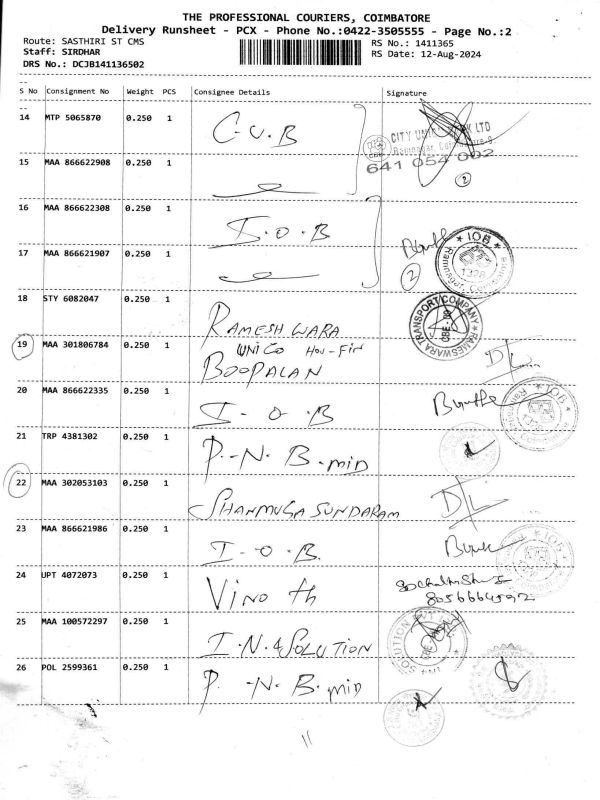 THE PROFESSIONAL COURIERS, COIMBATORE
Delivery Runsheet - PCX - Phone No.:0422-3505555 - Page No.:2
Route: SASTHIRI ST CMS
RS No.: 1411365
Staff: SIRDHAR
RS Date: 12-Aug-2024
DRS No.: DCJB141136502
S No Consignment No Weight PCS Consignee Details Signature
14 MTP 5065870 0.250 1 C.U.B
CITY UNION BANK LTD
Ramnagar, Coimbatore-9.
641 054 002
15 MAA 866622908 0.250 1
2
16 MAA 866622308 0.250 1 I.O.B
IOB
1328
17 MAA 866621907 0.250 1
2
18 STY 6082047 0.250 1 RAMESHWARA
RAMESWARA TRANSPORT COMPANY
CBE
19 MAA 301806784 0.250 1 UNICO HOU-FIN
BOOPALAN D/L
20 MAA 866622335 0.250 1 I-O-B
IOB
21 TRP 4381302 0.250 1 P.-N.B.min
22 MAA 302053103 0.250 1 SHANMUGA SUNDARAM D/L
23 MAA 866621986 0.250 1 I-O-B.
IOB
24 UPT 4072073 0.250 1 Vinoth
8056664592
25 MAA 100572297 0.250 1 I.N.4 SOLUTION
SOLUTION
26 POL 2599361 0.250 1 P.-N.B.min
11